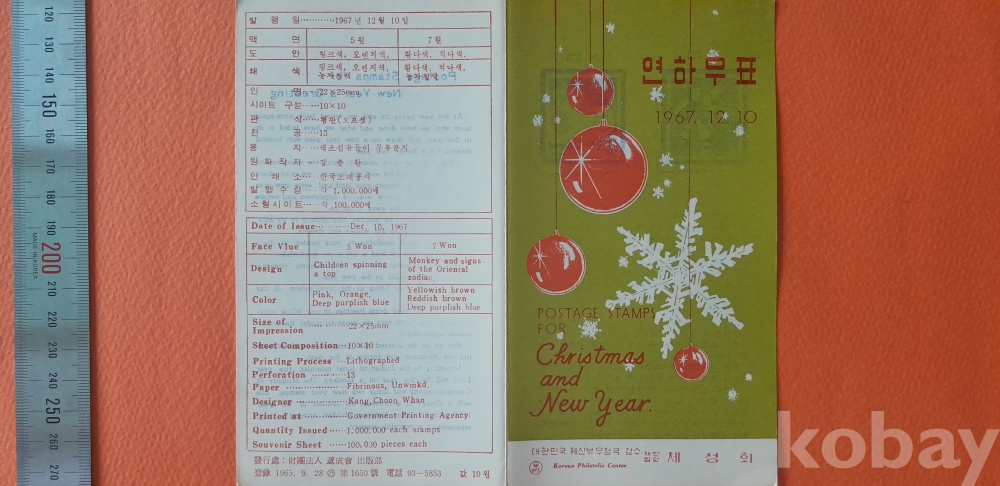 발 행 일…………1967년 12월 10일
액 면 5원 7원
도 안 핑크색, 오렌지색, 황다색, 적다색,
쇄 색 핑크색, 오렌지색, 농자청색 황다색, 적다색, 농자청색
인 면 ……22×25mm
시이트 구성……10×10
판 식……평판(오프셑)
천 공……13
용 지……색소섬유들이 무투문지
원 화 작 자……강 춘 환
인 쇄 소……한국조폐공사
발 행 수 량……각 1,000,000매
소형시이트……각 100,000매
Date of Issue…………Dec, 10, 1967
Face Vlue 5 Won 7 Won
Design Children spinning a top Monkey and signs of the Oriental zodiac
Color Pink, Orange, Deep purplish blue Yellowish brown Reddish brown Deep purplish blue
Size of
Impression …………22×25mm
Sheet Composition…10×10
Printing Process …Lithographed
Perforation …………13
Paper ……………………Fibrinous, Unwmkd.
Designer ………………Kang, Choon Whan
Printed at ……………Government Printing Agency
Quantity Issued……1,000,000 each stamps
Souvenir Sheet ……100,000 pieces each
發行處：財團法人 遞成會 出版部
登錄 1965. 9. 28 第1650號 電話 93-5853 값 10원
연하우표
1967. 12. 10
POSTAGE STAMPS
FOR
Christmas
and
New Year.
대한민국 체신부우정국 감수 체 성 회
Korean Philatelic Center
kobay
MADE IN KOREA
120
130
140
150
160
170
180
190
200
210
220
230
240
250
260
270